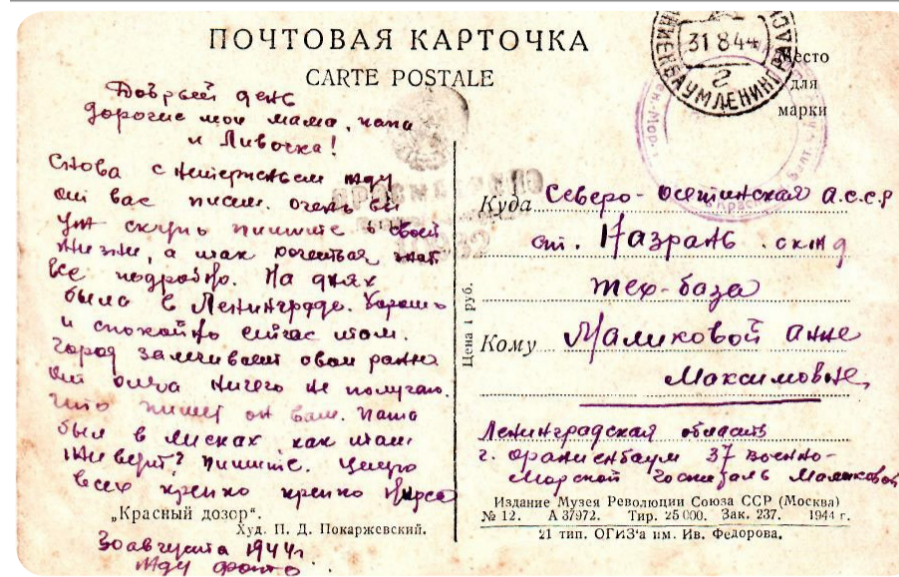 ПОЧТОВАЯ КАРТОЧКА
CARTE POSTALE
31 8 44
2
Место
для
марки
Добрый день
дорогие мои мама, папа
и Ливочка!
Снова с нетерпеньем жду
от вас писем. очень вы
уж скупо пишите о своей
жизни, а так хочеться знать
все подробно. На днях
была в Ленинграде. Хорошо
и спокойно сичас там.
Город залечивает свои раны
От ничего не получаю.
Что пишет он вам. папа
был в Лисках как там
живет? пишите. Целую
всех крепко крепко
„Красный дозор“.
Худ. П. Д. Покаржевский.
30 августа 1944г
Жду фото
Цена 1 руб.
Куда Северо-Осетинская А.С.С.Р
ст. Назрань
тех-база
Кому Маликовой Анне
Максимовне,
Ленинградская область
г. Ораниенбаум 37 военно-
морской госпиталь Маликовой
Издание Музея Революции Союза ССР (Москва)
№ 12. А 37972. Тир. 25 000. Зак. 237. 1944 г.
21 тип. ОГИЗ'а им. Ив. Федорова.